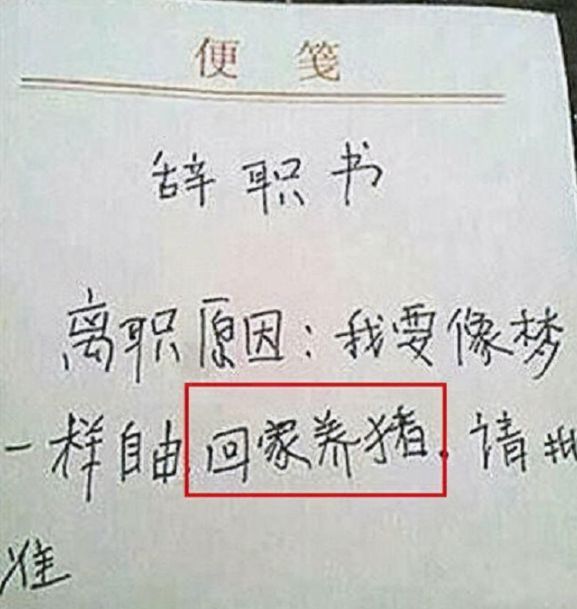 便笺
辞职书
离职原因:我要像梦
一样自由回家养猪.请批
准